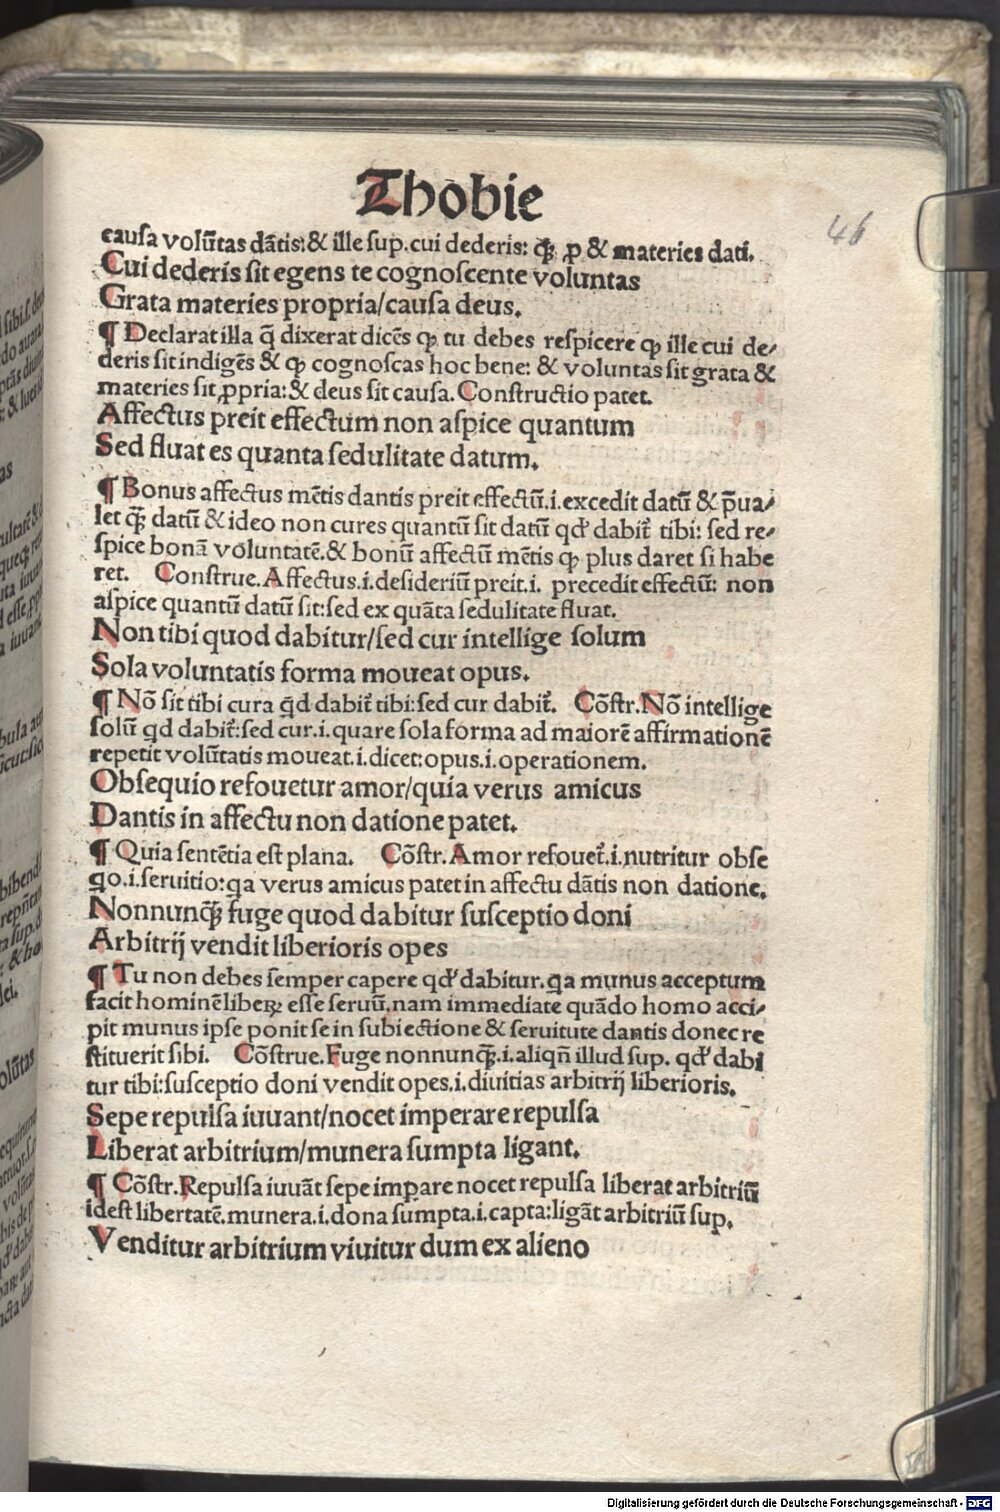 Thobie
46
causa volũtas dãtis:& ille sup.cui dederis: ꝙ̃ ꝓ & materies dati.
Cui dederis sit egens te cognoscente voluntas
Grata materies propria/causa deus.
¶ Declarat illa q̃ dixerat dicẽs ꝙ tu debes respicere ꝙ ille cui de/
deris sit indigẽs & ꝙ cognoscas hoc bene: & voluntas sit grata &
materies sit ꝓpria:& deus sit causa. Constructio patet.
Affectus preit effectum non aspice quantum
Sed fluat es quanta sedulitate datum.
¶ Bonus affectus mẽtis dantis preit effectũ.i.excedit datũ & p̃ua/
let ꝙ̃ datũ & ideo non cures quantũ sit datũ qđ dabit̃ tibi: sed re/
spice bonã voluntatẽ.& bonũ affectũ mẽtis ꝙ plus daret si habe
ret. Construe.Affectus.i.desideriũ preit.i. precedit effectũ: non
aspice quantũ datũ sit:sed ex quãta sedulitate fluat.
Non tibi quod dabitur/sed cur intellige solum
Sola voluntatis forma moueat opus.
¶ Nõ sit tibi cura q̇d dabit̃ tibi:sed cur dabit̃. Cõstr.Nõ intellige
solũ qd dabit̃:sed cur.i.quare sola forma ad maiorẽ affirmationẽ
repetit volũtatis moueat.i.dicet:opus.i.operationem.
Obsequio refouetur amor/quia verus amicus
Dantis in affectu non datione patet.
¶ Quia sentẽtia est plana. Cõstr.Amor refouet̃.i.nutritur obse
qo.i.seruitio:qa verus amicus patet in affectu dãtis non datione.
Nonnunꝙ̃ fuge quod dabitur susceptio doni
Arbitrij vendit liberioris opes
¶ Tu non debes semper capere qđ dabitur.qa munus acceptum
facit hominẽ liberꝝ esse seruũ.nam immediate quãdo homo acci/
pit munus ipse ponit se in subiectione & seruitute dantis donec re
stituerit sibi. Cõstrue.Fuge nonnunꝙ̃.i.aliqñ illud sup. qđ dabi
tur tibi:susceptio doni vendit opes.i.diuitias arbitrij liberioris.
Sepe repulsa iuuant/nocet imperare repulsa
Liberat arbitrium/munera sumpta ligant.
¶ Cõstr.Repulsa iuuãt sepe imꝑare nocet repulsa liberat arbitriũ
idest libertatẽ.munera.i.dona sumpta.i.capta:ligãt arbitriũ sup.
Venditur arbitrium viuitur dum ex alieno
Digitalisierung gefördert durch die Deutsche Forschungsgemeinschaft - DFG